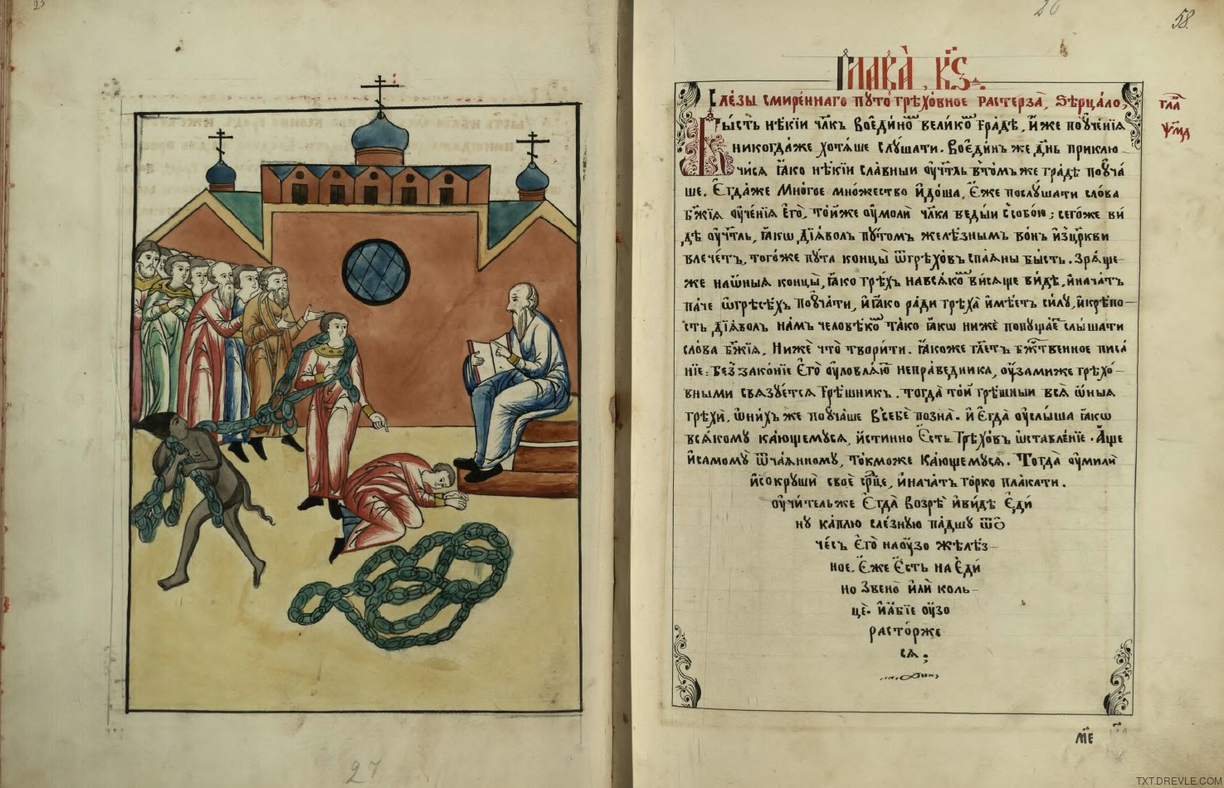 27
58.
Глава̀ к҃ѕ.
Слезы смиреннаго пꙋто грѣховное растерза, Ѕерцало,
гла̀
ѱ҃мд
Бысть нѣкїи члкъ воединѡ великѡ градѣ, иже поꙋченїѧ
никогдаже хотѧше слꙋшати. Воединъ же днь приклю
чисѧ ꙗко нѣкїи славныи ᲂучтль втомъже градѣ поꙋча
ше. Егдаже многое множество идоша, еже послꙋшати слова
бж҃їѧ ᲂученїѧ его, тойже ᲂумоли члка ведыи ссобою; сегоже ви
дѣ ᲂучтль, ꙗкѡ дїѧволъ пꙋтомъ желѣзнымъ вонъ изцркви
влечетъ, тогоже пꙋта концы ѿгрѣховъ спаѧны бысть. Зрѧще
же наѡныѧ концы, ꙗко грѣхъ навсѧкѡ висѧще видѣ, иначатъ
паче ѡгресѣхъ поꙋчати, иꙗко ради грѣха имѣетъ силꙋ, икрѣпо
сть дїѧволъ намъ человѣкѡ тако ꙗкѡ ниже попꙋщае слышати
слова бж҃їѧ, ниже что творити. ꙗкоже глетъ бжтвенное писа
нїе: Беззаконїе его ᲂуловлѧю неправедника, ᲂузамиже грѣхо
вными свѧзꙋетсѧ грѣшникъ. тогда той грѣшныи всѧ ѡныѧ
грѣхи, ѡнихъ же поꙋчаше всебе позна. и егда ᲂуслыша ꙗкѡ
всѧкомꙋ кающемꙋсѧ, истинно есть грѣховъ ѡставленїе. Аще
исамомꙋ ѿчаѧнномꙋ, токможе кающемꙋсѧ. Тогда ᲂумили
исокрꙋши свое срдце, иначатъ горко плакати.
ᲂучительже егда возрѣ ивидѣ еди
нꙋ каплю слезнꙋю падшꙋ ѿо
чесъ его наᲂузо желѣз
ное. еже есть на еди
но звено или коль
це. иабїе ᲂузо
расторже
сѧ;
м҃е
TXT.DREVLE.COM